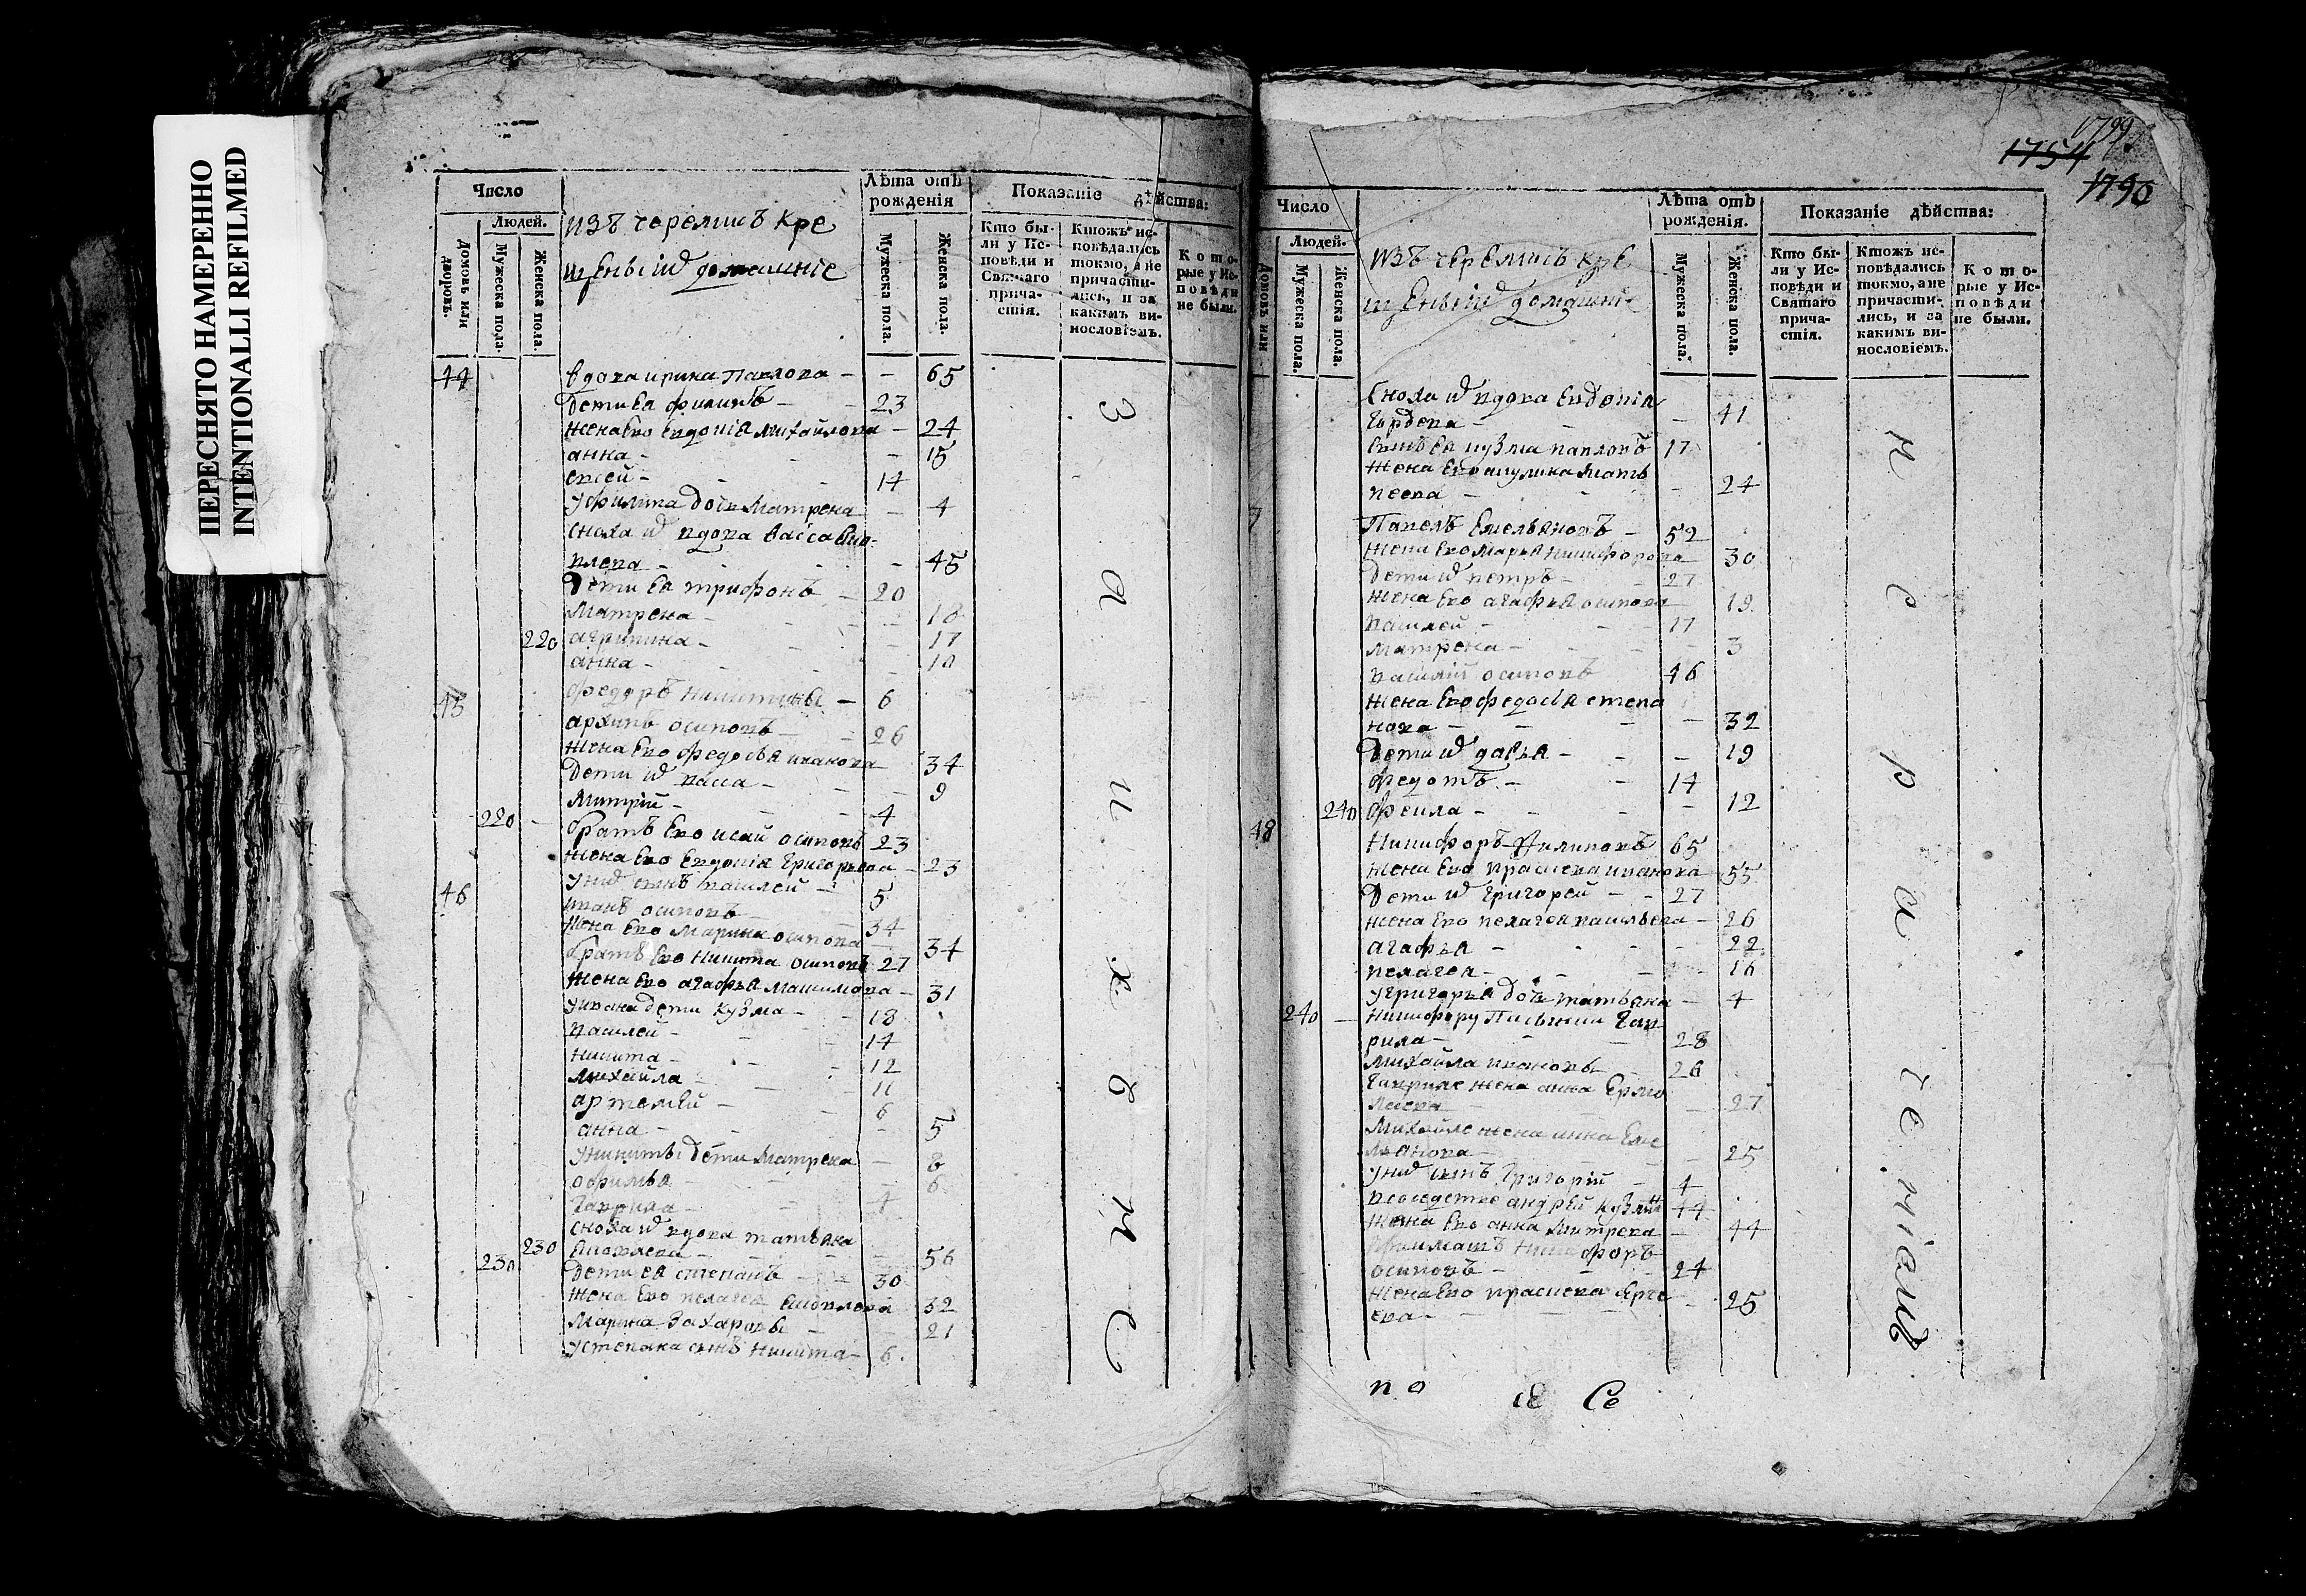 ПЕРЕСНЯТО НАМЕРЕННО
INTENTIONALLI REFILMED
Число
Людей.
Домовъ или дворовъ.
Мужеска пола.
Женска пола.
изъ черемисъ кре
щеныіѿ домашніе
Лѣта отъ рожденія
Мужеска пола.
Женска пола.
Показаніе дѣйства:
Кто были у Исповѣди и Святаго причастія.
Ктожъ исповѣдались токмо, а не причастились, и за какимъ винословіемъ.
Которые у Исповѣди не были.
44 вдова ирина павлова - - 65
дети Ея филипъ - 23
жена Ево Евдокія михайлова - 24
анна - - 15
14
у филипа дочь матрена - 4
сноха иѿ вдова васса
- 45
дети Ея трифонъ - 20
матрена - 18
220 агрипина - 17
анна - 10
45 федоръ никитины - 6
архипъ осиповъ - 26
жена Ево федосья иванова 34
дети иѿ васса - 9
митрій - 4
220 братъ Ево исай осиповъ 23
жена Ево Евдокія григорьева - 23
у ниѿ сынъ василей - 5
46 иванъ осиповъ 34
жена Ево марина осипова 34
братъ Ево никита осиповъ 27
жена Ево агафья максимова - 31
у ивана дети кузма - 18
василей - 14
никита - 12
михайла 11
артемей - 6
анна - 5
у никиты дети матрена - 8
офимья 6
гаврила - 4
сноха иѿ вдова татьяна
230 230 - 56
дети ея степанъ - 30
жена Ево пелагея 32
марина захаровы - 21
у степана сынъ никита - 6.
З а и х б ы с
1799
1754
1790
Число
Людей.
Домовъ или
Мужеска пола.
Женска пола.
изъ черемисъ кре
щеныіѿ домашніе
Лѣта отъ рожденія.
Мужеска пола.
Женска пола.
Показаніе дѣйства:
Кто были у Исповѣди и Святаго причастія.
Ктожъ исповѣдались токмо, а не причастились, и за какимъ винословіемъ.
Которые у Исповѣди не были.
сноха иѿ вдова Евдокія
гордева - 41
сынъ Ея кузма павловъ 17
жена Ево акулина матв
веева - 24
7 павелъ Емельяновъ - 52
жена Ево марья никифорова 30
дети иѿ петръ - 27
жена Ево агафья осипова 19
василей - 17
матрена - 3
василій осиповъ 46
жена Ево федосья степа
нова - 32
дети иѿ дарья - 19
федотъ - 14
240 фекла - 12
48 никифоръ филиповъ 65
жена Ево прасковья иванова 55
дети иѿ григорей - 27
жена Ево пелагея васильева - 26
агафья - 22
пелагея - 16
у григорья дочь татьяна - 4
240 никифору пасынки гав
рила - 28
михайла ивановы 26
гавриле жена анна Ермо
лаева 27
михайле жена анна Еме
льянова - 25
у ниѿ сынъ григорій - 4
в соседстве андрей кузмин 44
жена Ево анна митрева - 44
никифоръ
осиповъ - 24
жена Ево прасковья сярге
ева - 25
н е р а ч е н і а м ъ
п о
Се